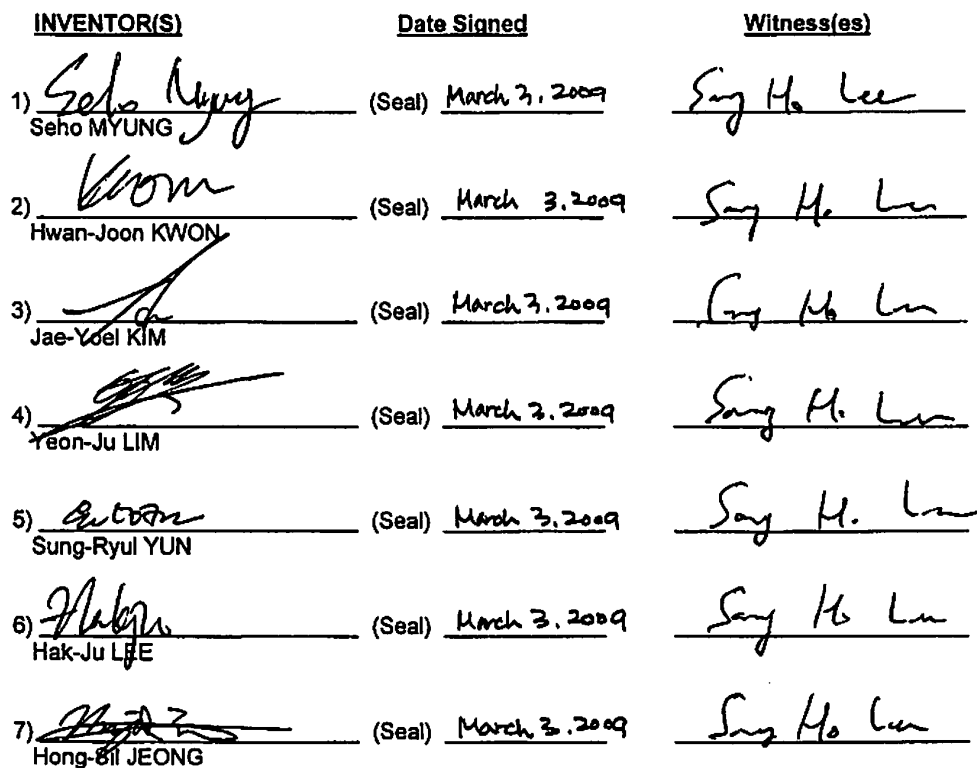 INVENTOR(S) Date Signed Witness(es)
1) Seho Myung (Seal) March 3, 2009 Sang Ho Lee
Seho MYUNG
2) Kwon (Seal) March 3, 2009 Sang Ho Lee
Hwan-Joon KWON
3) (Seal) March 3, 2009 Sang Ho Lee
Jae-Yoel KIM
4) (Seal) March 3, 2009 Sang Ho Lee
Yeon-Ju LIM
5) (Seal) March 3, 2009 Sang Ho Lee
Sung-Ryul YUN
6) (Seal) March 3, 2009 Sang Ho Lee
Hak-Ju LEE
7) (Seal) March 3, 2009 Sang Ho Lee
Hong-Sil JEONG